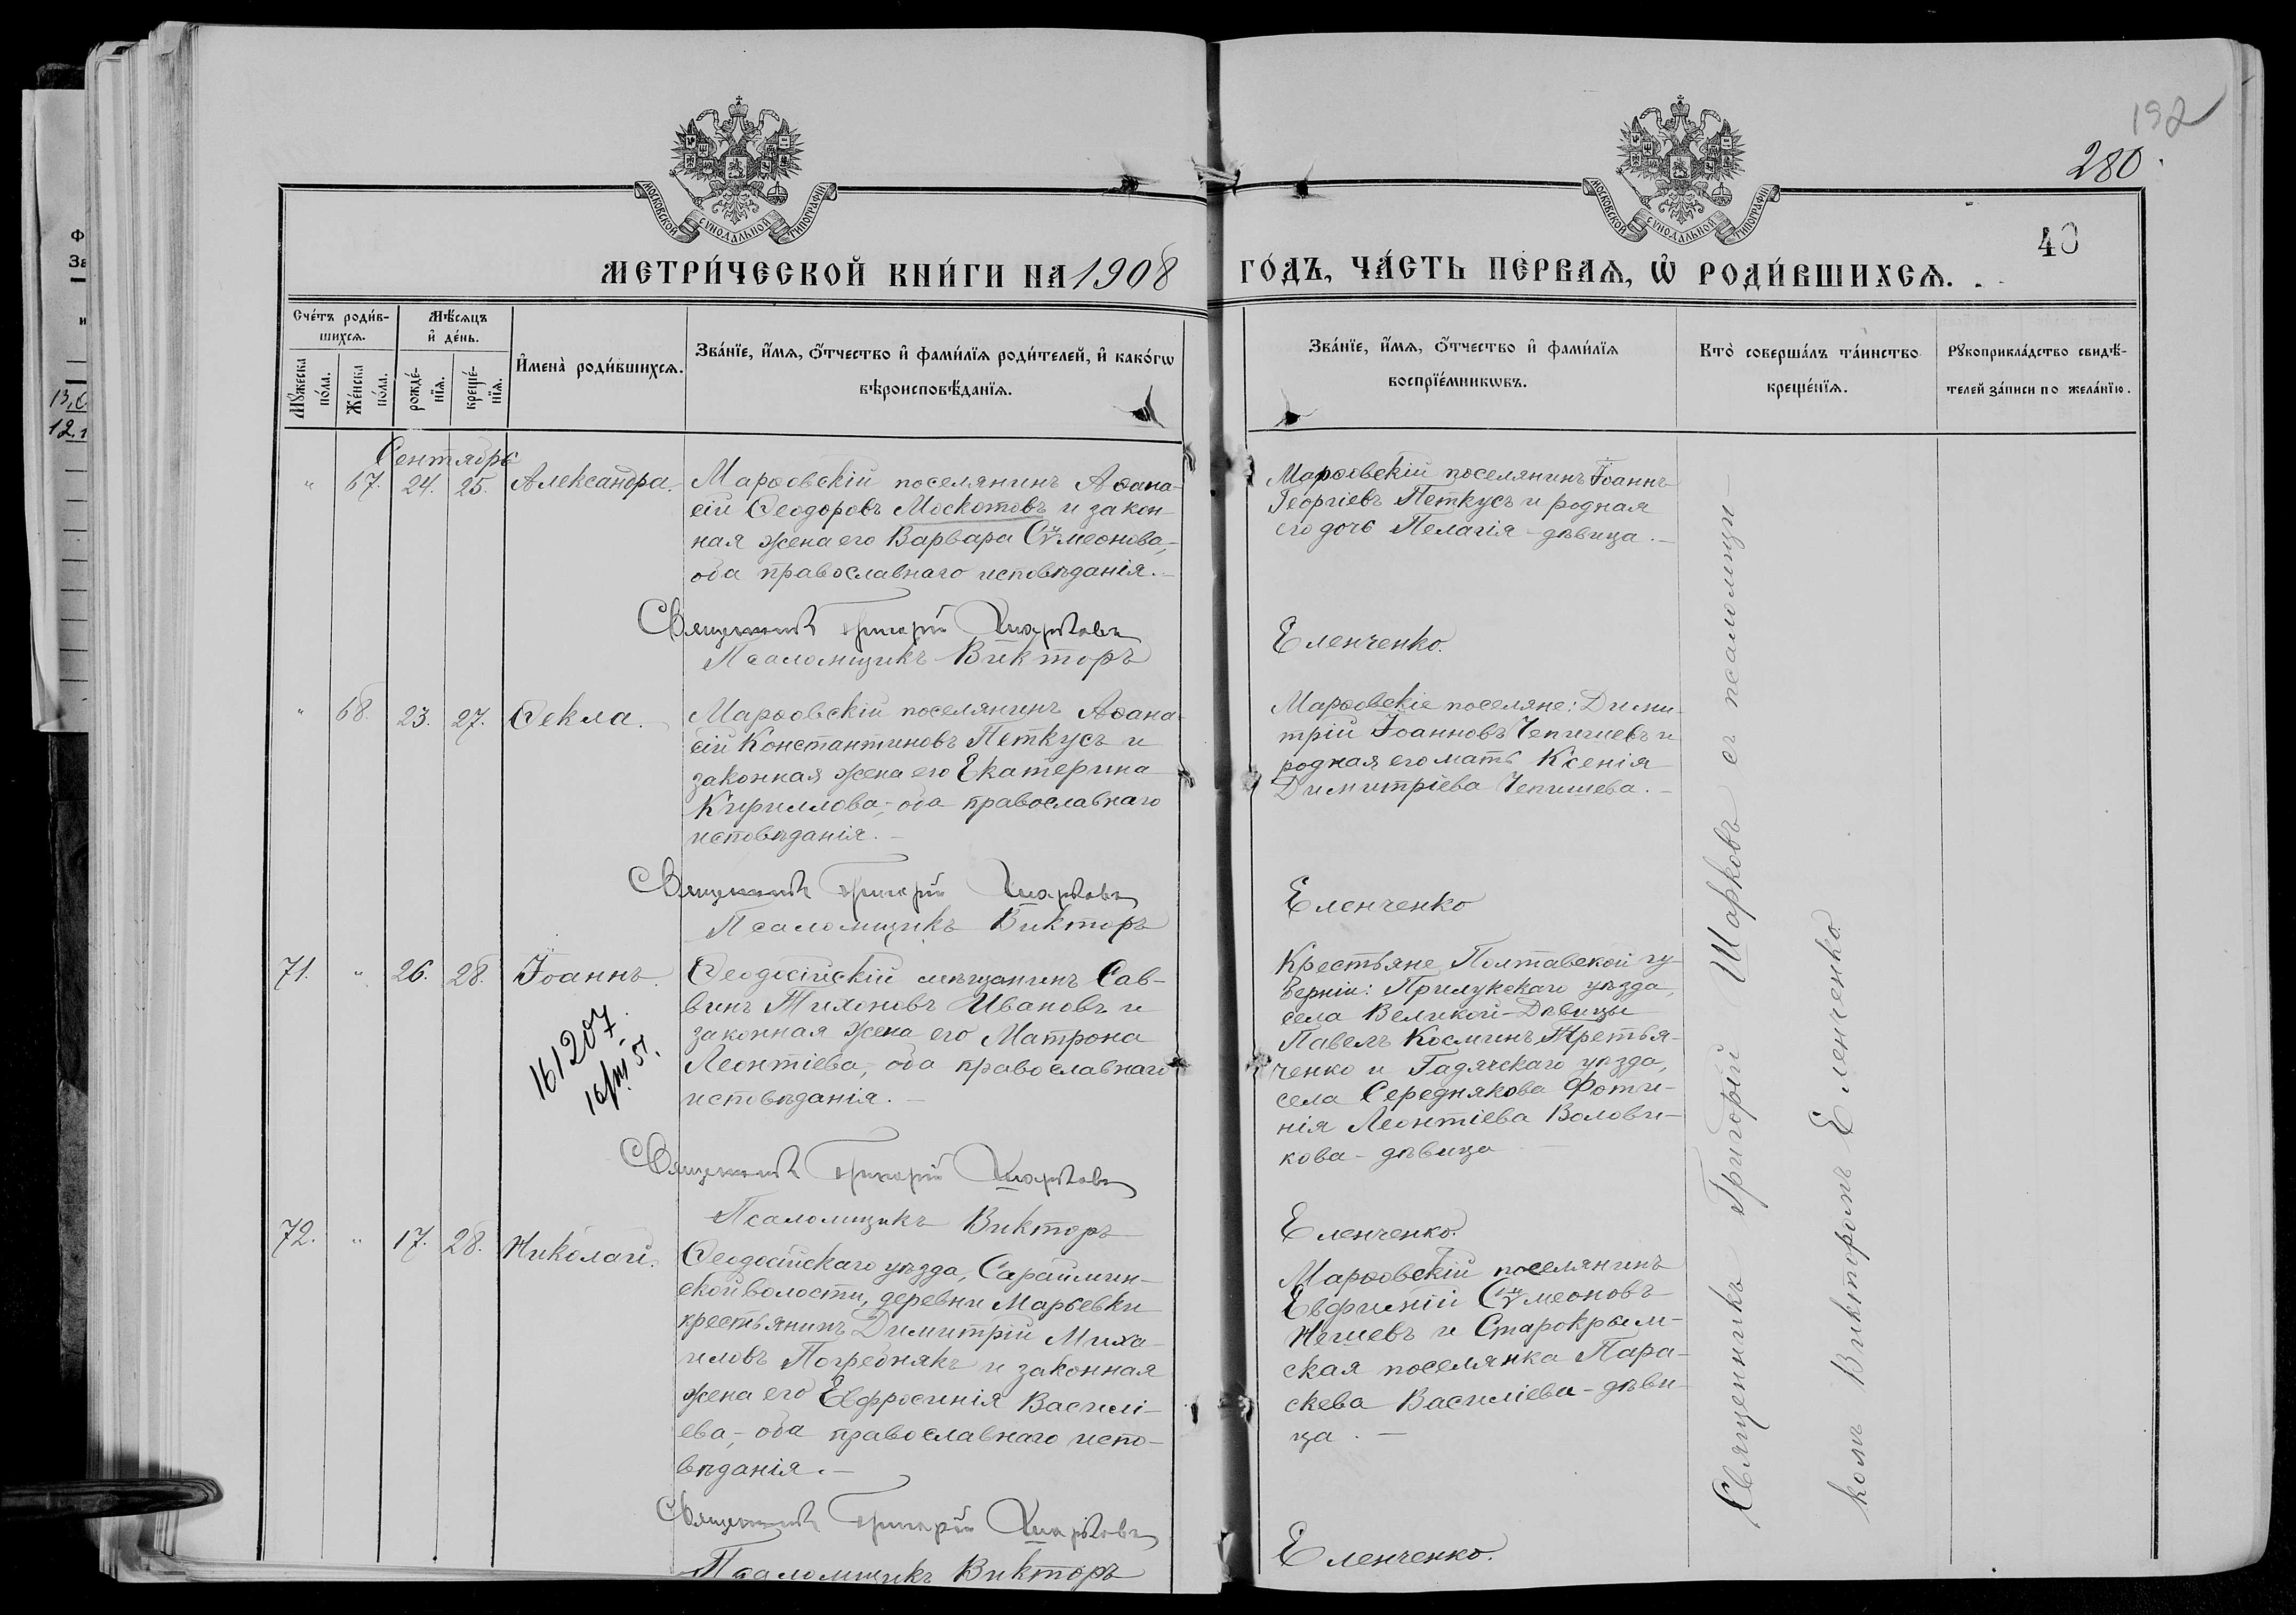 192
280.
40
МОСКОВСКОЙ СѴНОДАЛЬНОЙ ТИПОГРАФІИ
МОСКОВСКОЙ СѴНОДАЛЬНОЙ ТИПОГРАФІИ
МЕТРИ́ЧЕСКОЙ КНИ́ГИ НА 1908
ГО́ДЪ, ЧА́СТЬ ПЕ́РВАѦ, Ѡ҆ РОДИ́ВШИХСѦ.
Сче́тъ роди́в-
шихсѧ.
Мѣ́сѧцъ
и҆ де́нь.
Мꙋ́жеска
по́ла.
Же́нска
по́ла.
рожде́-
нїѧ.
креще́-
нїѧ.
И҆мена̀ роди́вшихсѧ.
Зва́нїе, и҆́мѧ, о҆́тчество и҆ фами́лїѧ роди́телей, и҆ како́гѡ
вѣроисповѣ́данїѧ.
Зва́нїе, и҆́мѧ, о҆́тчество и҆ фами́лїѧ
воспрїе́мникѡвъ.
Кто̀ соверша́лъ та́инство
креще́нїѧ.
Рꙋкоприкла́дство свидѣ́-
телей за́писи по жела́нїю.
Сентябрь
" 67. 24. 25. Александра.
Марѳовскій поселянинъ Аѳана-
сій Ѳеодоровъ Москотовъ и закон-
ная жена его Варвара Сѵмеонова,
оба православнаго исповѣданія.
Священникъ Григорій Шарковъ
Псаломщикъ Викторъ
Марѳовскій поселянинъ Іоаннъ
Георгіевъ Петкусъ и родная
его дочь Пелагія - дѣвица.
Еленченко.
" 68. 23. 27. Ѳекла.
Марѳовскій поселянинъ Аѳана-
сій Константиновъ Петкусъ и
законная жена его Екатерина
Кириллова, оба православнаго
исповѣданія.
Священникъ Григорій Шарковъ
Псаломщикъ Викторъ
Марѳовскіе поселяне: Дими-
трій Іоанновъ Чепишевъ и
родная его мать Ксенія
Димитріева Чепишева.
Еленченко
71. " 26. 28. Іоаннъ.
161207
Ѳеодосійскій мѣщанинъ Сав-
винъ Тихоновъ Ивановъ и
законная жена его Матрона
Леонтіева, оба православнаго
исповѣданія.
Священникъ Григорій Шарковъ
Псаломщикъ Викторъ
Крестьяне Полтавской гу-
берніи: Прилукскаго уѣзда,
села Великой-Дѣвицы
Павелъ Косминъ Третья-
ченко и Гадячскаго уѣзда,
села Середнякова Фоти-
нія Леонтіева Волови-
кова - дѣвица
Еленченко.
72. " 17. 28. Николай.
Ѳеодосійскаго уѣзда, Сарайминс-
кой волости, деревни Марьевки
крестьянинъ Димитрій Миха-
иловъ Погребнякъ и законная
жена его Евфросинія Василі-
ева, оба православнаго испо-
вѣданія.
Священникъ Григорій Шарковъ
Псаломщикъ Викторъ
Марѳовскій поселянинъ
Евфимій Сѵмеоновъ
Нешевъ и Старокрым-
ская поселянка Пара-
скева Василіева - дѣви-
ца.
Еленченко.
Священникъ Григорій Шарковъ съ псаломщи-
комъ Викторомъ Еленченко.